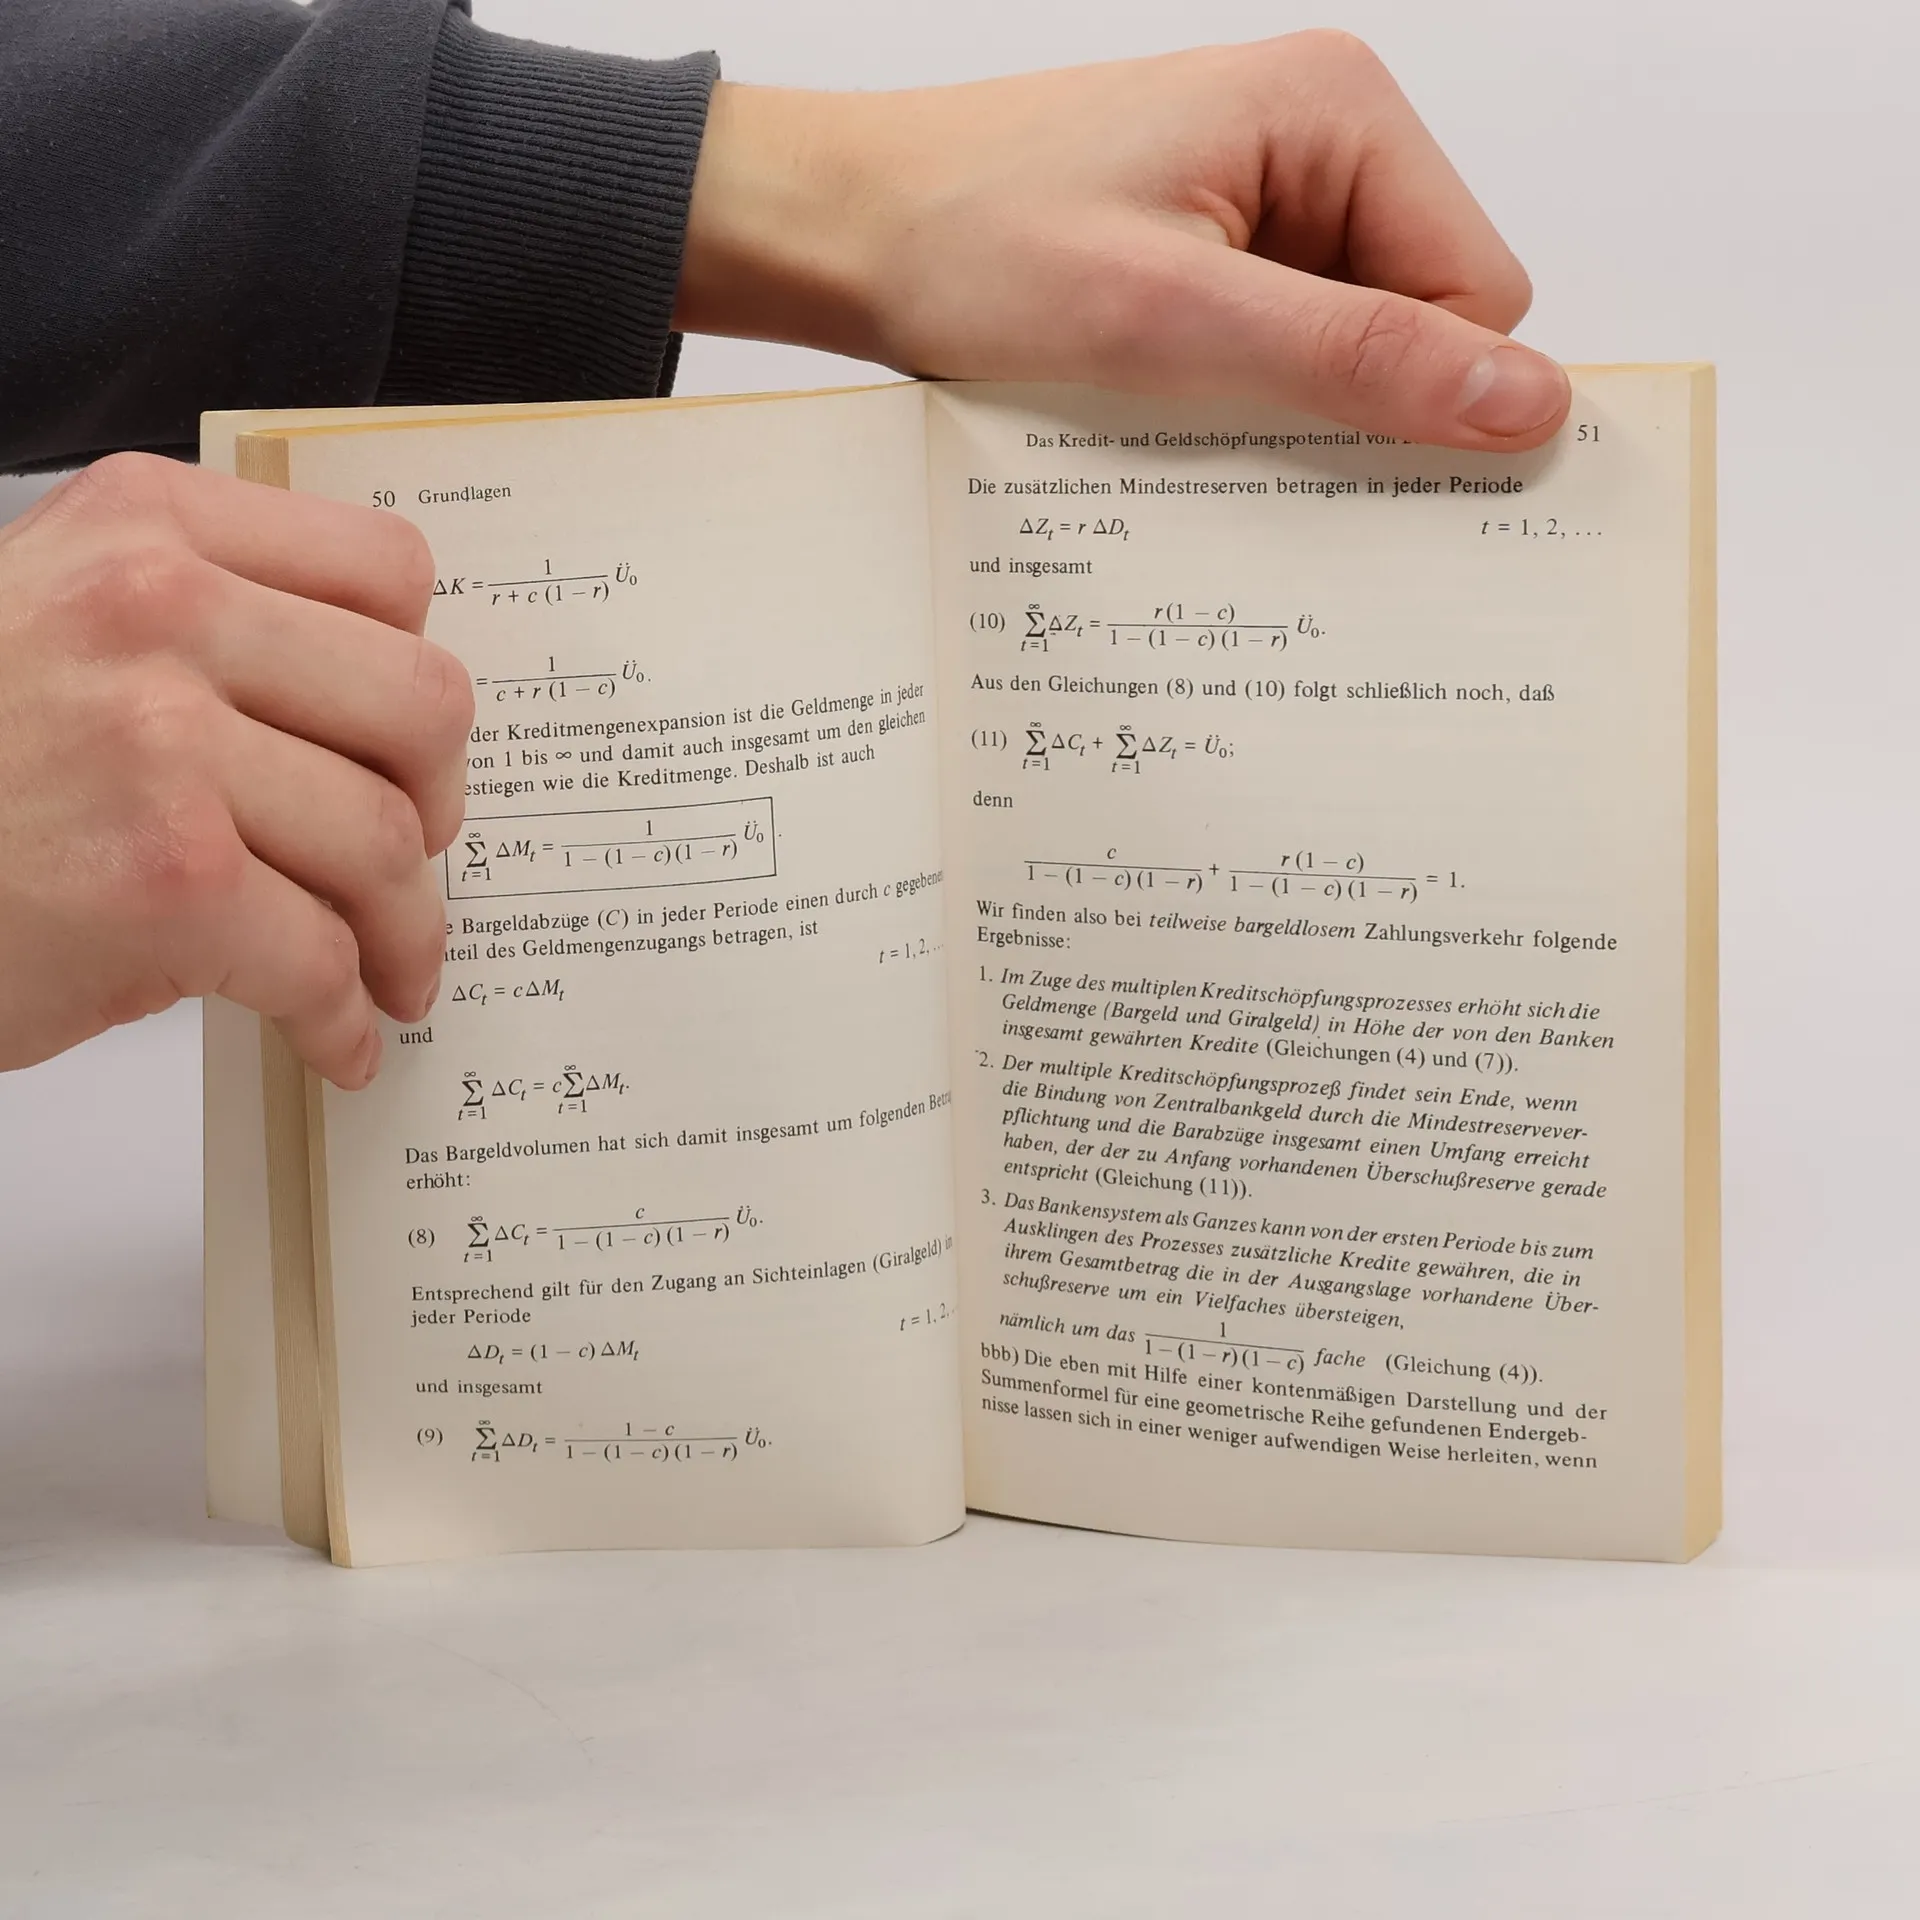 50 Grundlagen
ΔK = 1 / (r + c (1 – r)) Ü₀
= 1 / (c + r (1 – c)) Ü₀.
der Kreditmengenexpansion ist die Geldmenge in jeder
1 bis ∞ und damit auch insgesamt um den gleichen
wie die Kreditmenge. Deshalb ist auch
∞∑t=1 ΔMₜ = 1 / (1 – (1 – c)(1 – r)) Ü₀.
Bargeldabzüge (C) in jeder Periode einen durch c
des Geldmengenzugangs betragen, ist
t = 1, 2, ...
ΔCₜ = cΔMₜ
und
∞∑t=1 ΔCₜ = c ∞∑t=1 ΔMₜ.
Das Bargeldvolumen hat sich damit insgesamt um folgenden
erhöht:
(8) ∞∑t=1 ΔCₜ = c / (1 – (1 – c) (1 – r)) Ü₀.
Entsprechend gilt für den Zugang an Sichteinlagen (Giralgeld) in
jeder Periode
t = 1, 2, ..
ΔDₜ = (1 – c) ΔMₜ
und insgesamt
(9) ∞∑t=1 ΔDₜ = (1 – c) / (1 – (1 – c) (1 – r)) Ü₀.
Das Kredit- und Geldschöpfungspotential von
51
Die zusätzlichen Mindestreserven betragen in jeder Periode
ΔZₜ = r ΔDₜ t = 1, 2, ...
und insgesamt
(10) ∞∑t=1 ΔZₜ = r(1 – c) / (1 – (1 – c) (1 – r)) Ü₀.
Aus den Gleichungen (8) und (10) folgt schließlich noch, daß
(11) ∞∑t=1 ΔCₜ + ∞∑t=1 ΔZₜ = Ü₀;
denn
c / (1 – (1 – c) (1 – r)) + r (1 – c) / (1 – (1 – c) (1 – r)) = 1.
Wir finden also bei teilweise bargeldlosem Zahlungsverkehr folgende
Ergebnisse:
1. Im Zuge des multiplen Kreditschöpfungsprozesses erhöht sich die
Geldmenge (Bargeld und Giralgeld) in Höhe der von den Banken
insgesamt gewährten Kredite (Gleichungen (4) und (7)).
2. Der multiple Kreditschöpfungsprozeß findet sein Ende, wenn
die Bindung von Zentralbankgeld durch die Mindestreservever-
pflichtung und die Barabzüge insgesamt einen Umfang erreicht
haben, der der zu Anfang vorhandenen Überschußreserve gerade
entspricht (Gleichung (11)).
3. Das Bankensystem als Ganzes kann von der ersten Periode bis zum
Ausklingen des Prozesses zusätzliche Kredite gewähren, die in
ihrem Gesamtbetrag die in der Ausgangslage vorhandene Über-
schußreserve um ein Vielfaches übersteigen,
nämlich um das 1 / (1 – (1 – r) (1 – c)) fache (Gleichung (4)).
bbb) Die eben mit Hilfe einer kontenmäßigen Darstellung und der
Summenformel für eine geometrische Reihe gefundenen Endergeb-
nisse lassen sich in einer weniger aufwendigen Weise herleiten, wenn